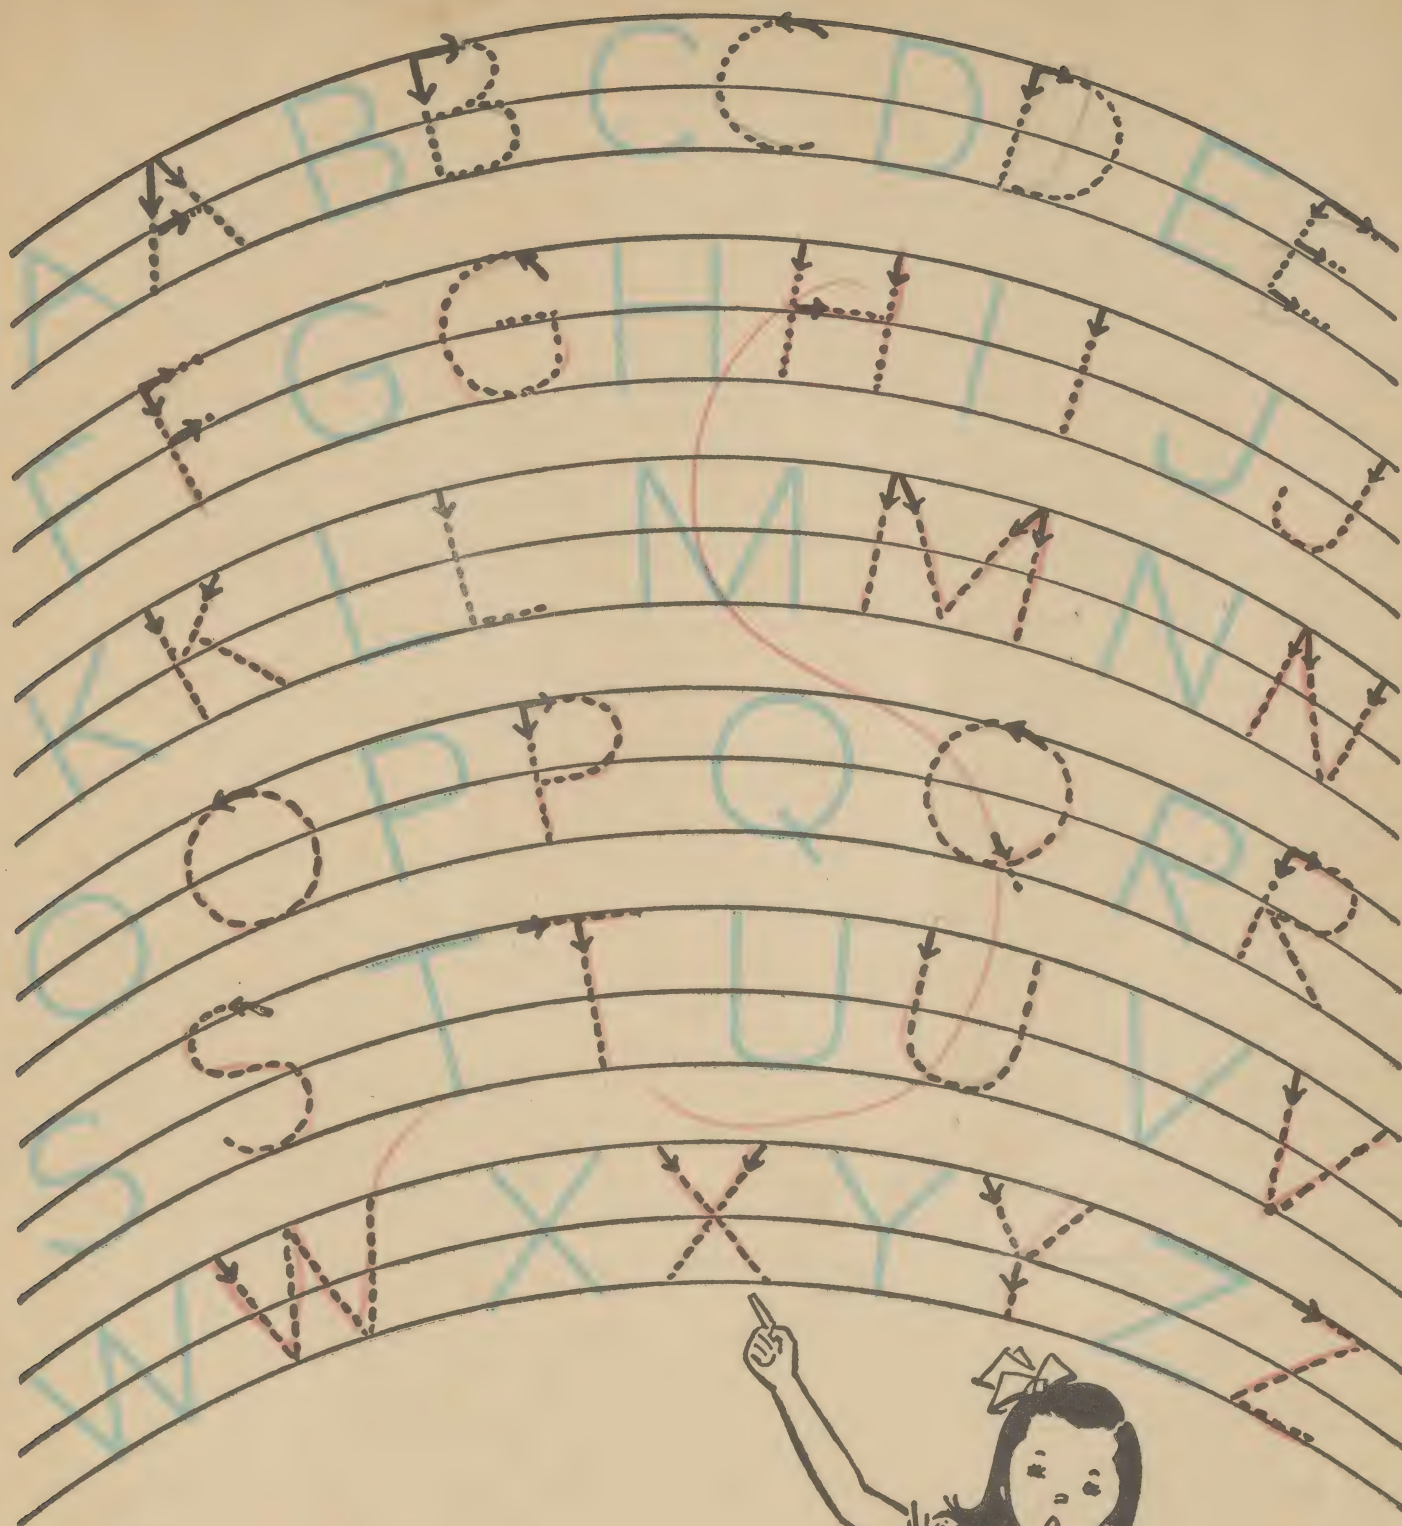 A A B B C C D D E E
F F G G H H I I J J
K K L L M M N N
O O P P Q Q R R
S S T T U U V V
W W X X Y Y Z Z